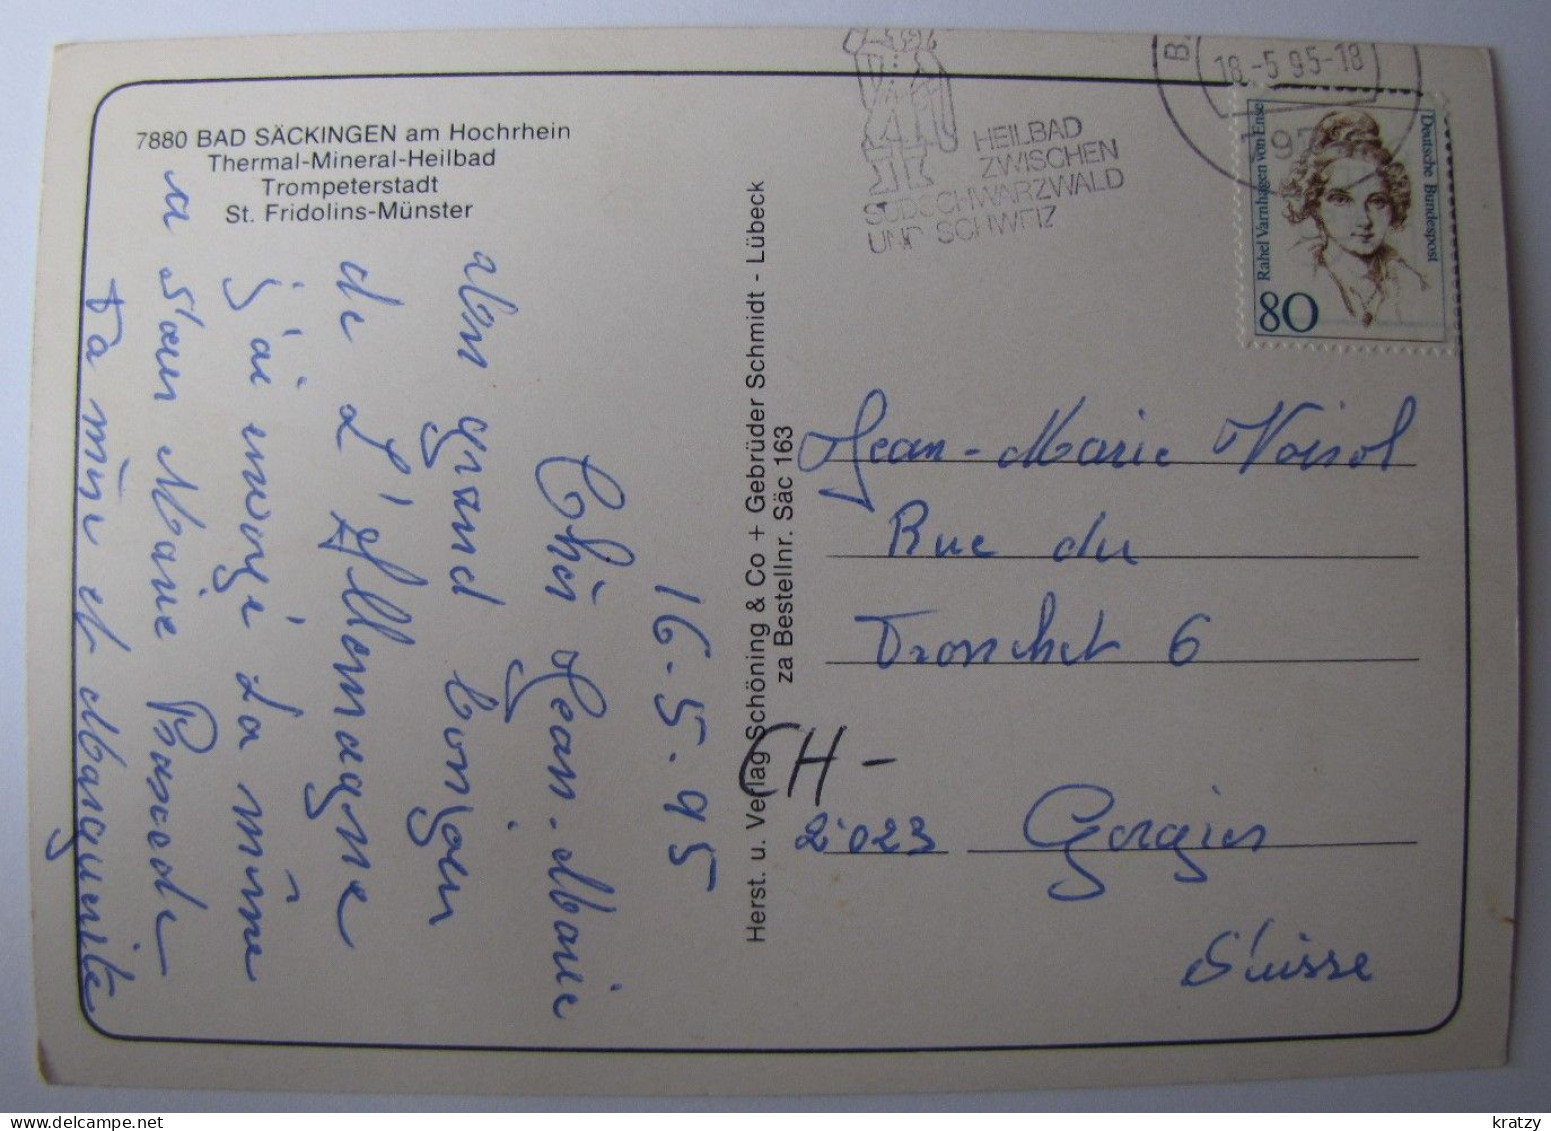 7880 BAD SÄCKINGEN am Hochrhein
Thermal-Mineral-Heilbad
Trompeterstadt
St. Fridolins-Münster
16.5.95
Cher Jean-Marie
grand bonjour
de l'Allemagne
j'ai envoyé la même
a Sœur Marie
Ta mère et Marguerite
Herst. u. Verlag Schöning & Co + Gebrüder Schmidt - Lübeck
za Bestellnr. Säc 163
HEILBAD
ZWISCHEN
SÜDSCHWARZWALD
UND SCHWEIZ
18.-5.95-18
Deutsche Bundespost
Rahel Varnhagen von Ense
80
Jean-Marie Voirol
Rue du
Tronchet 6
CH-
2023 Gorgier
Suisse
kratzy